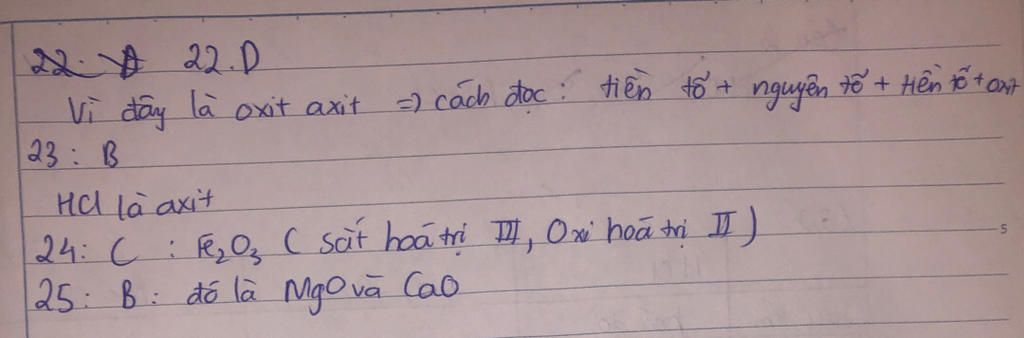 22. D
Vì đây là oxit axit => cách đọc : tiền tố + nguyên tố + tiền tố + oxit
23 : B
HCl là axit
24 : C : Fe₂O₃ ( sắt hoá trị III, Oxi hoá trị II )
25 : B : đó là MgO và CaO
5